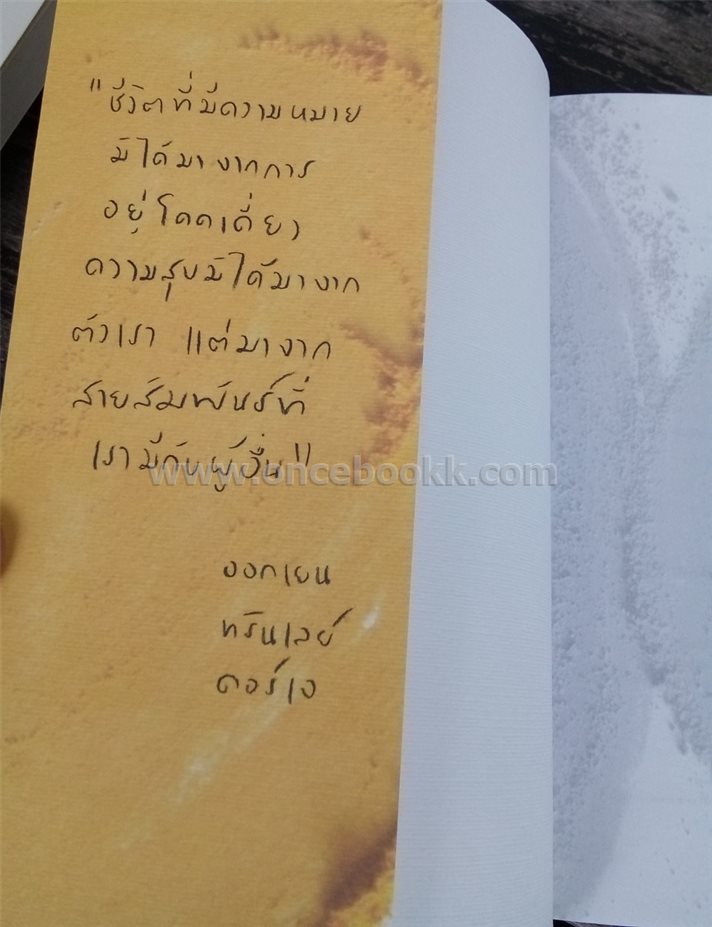 "ชีวิตที่มีความหมาย
มิได้มาจากการ
อยู่โดดเดี่ยว
ความสุขมิได้มาจาก
ตัวเรา แต่มาจาก
สายสัมพันธ์ที่
เรามีกับผู้อื่น"
www.oncebookk.com
ออกเยน
ทรินเลย์
ดอร์เจ